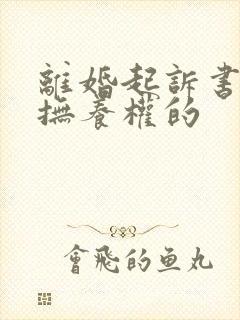 離婚起訴書
撫養權的
會飛的鱼丸